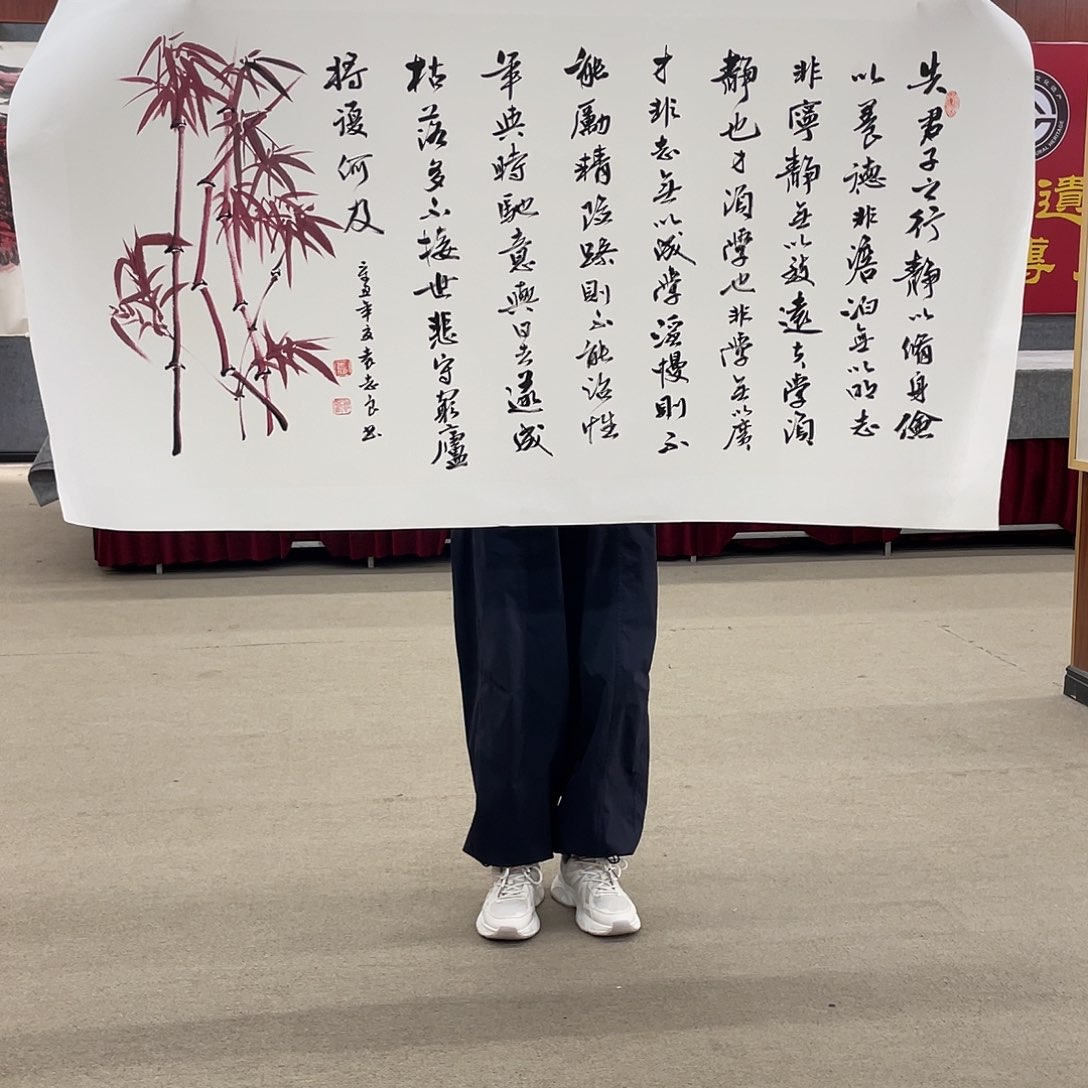 夫君子之行靜以脩身儉
以養德非澹泊無以明志
非寧靜無以致遠夫學須
靜也才須學也非學無以廣
才非志無以成學淫慢則不
能勵精險躁則不能治性
年與時馳意與日去遂成
枯落多不接世悲守窮廬
將復何及
辛丑年夏袁志良书
遺